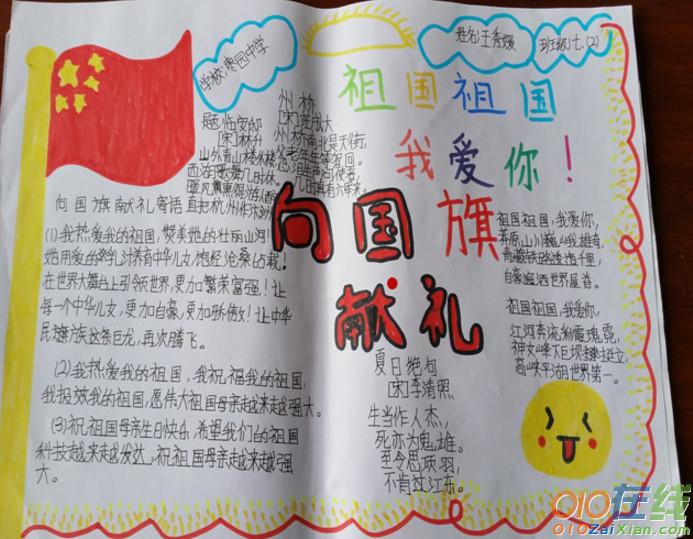 学校:枣园中学
姓名:王秀媛
班级:七.(2)
祖国祖国
我爱你!
题临安邸
[宋]林升
山外青山楼外楼
西湖歌舞几时休。
暖风熏得游人醉
直把杭州作汴州
州桥
[宋]范成大
州桥南北是天街,
父老年年等驾回。
忍泪失声问使者,
几时真有六军来。
向国旗献礼
向国旗献礼寄语
(1)我热爱我的祖国,赞美她的壮丽山河!
她用爱的乳汁养育中华儿女,饱经沧桑
在世界大舞台上引领世界,更加繁荣富强!让
每一个中华儿女,更加自豪,更加骄傲!让中华
民族这条巨龙,再次腾飞。
(2)我热爱我的祖国,我祝福我的祖国,
我报效我的祖国,愿伟大祖国母亲越来越强大。
(3)祝祖国母亲生日快乐,希望我们的祖国
科技越来越发达,祝祖国母亲越来越强
大。
夏日绝句
[宋]李清照
生当作人杰,
死亦为鬼雄。
至今思项羽,
不肯过江东。
祖国祖国,我爱你,
莽原山川巍峨雄奇,
青藏铁路连通千里,
自豪 世界屋脊。
祖国祖国,我爱你,
江河奔流
神女峰下大坝挺立,
高峡平湖世界第一。
010在线
010ZaiXian.com